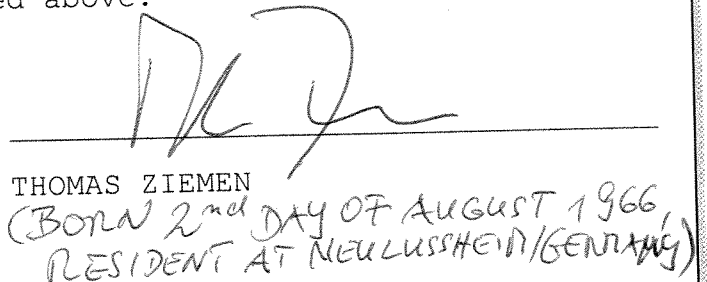 ed above.
THOMAS ZIEMEN
(BORN 2nd DAY OF AUGUST 1966,
RESIDENT AT NEULUSSHEIM/GERMANY)